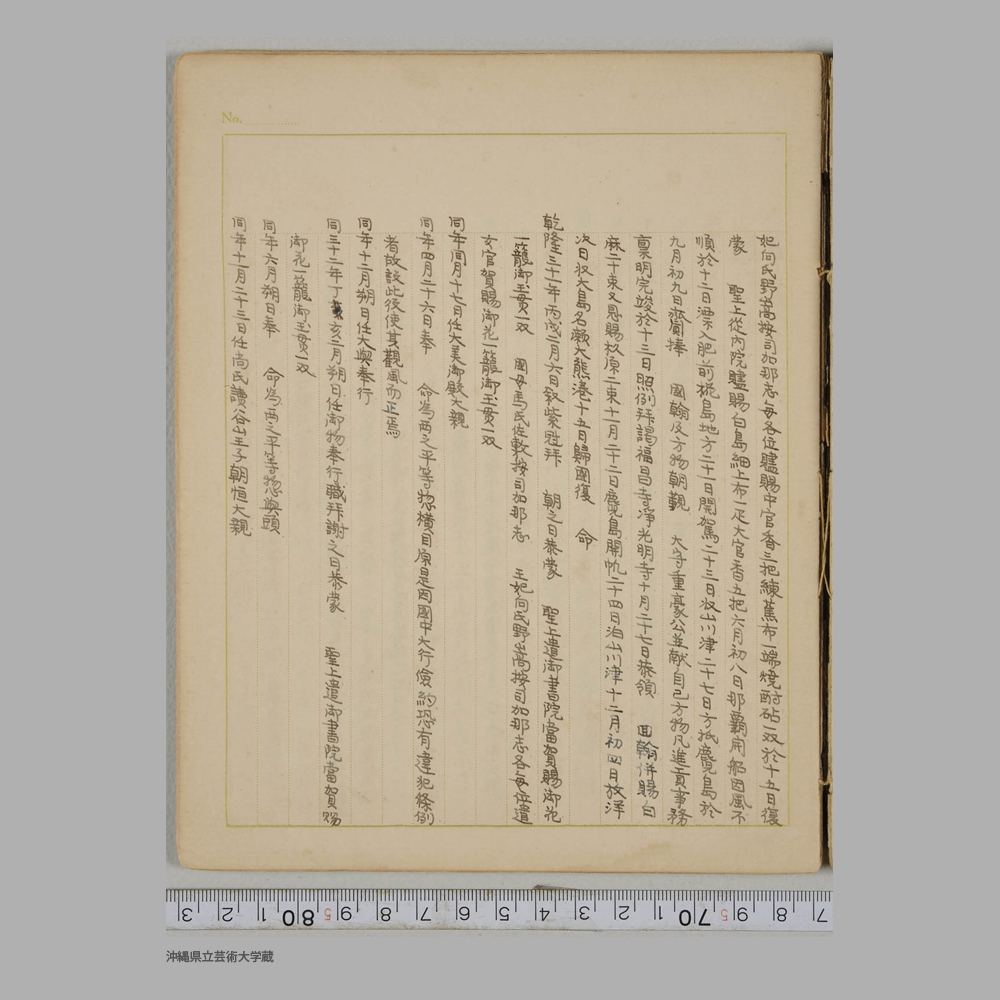 No.
妃向氏野嵩按司加那志毎各位臚賜中官香三把練蕉布一端焼酎砧一双於十五日復
蒙　聖上従内院臚賜白島細上布一疋大官香五把六月初八日那覇開船因風不
順於十二日漂入肥前椛島地方二十一日開駕二十三日収山川津二十七日方抵麑島於
九月初九日齎捧　国翰及方物朝覲　太守重豪公並献自己方物凡進貢事務
禀明完竣於十三日照例拝謁福昌寺浄光明寺十月二十七日恭領　回翰併賜白
麻二十束又恩賜杉原二束十一月二十二日麑島開帆二十四日泊山川津十二月初四日放洋
次日収大島名瀬大熊港十五日帰国復　命
乾隆三十一年丙戌二月六日叙紫冠拝　朝之日恭蒙　聖上遣御書院當賀賜御花
一籠御玉貫一双　国母馬氏佐敷按司加那志　王妃向氏野嵩按司加那志各毎位遣
女官賀賜御花一籠御玉貫一双
同年同月十七日任大美御殿大親
同年四月二十六日奉　命為西之平等惣横目原是因國中大行倹約恐有違犯條例
者故設此役使其観風而正焉
同年十二月朔日任大與奉行
同三十二年丁亥三月朔日任御物奉行職拝謝之日恭蒙　聖上遣御書院當賀賜
御花一籠御玉貫一双
同年六月朔日奉　命為西之平等惣與頭
同年十一月二十三日任尚氏讀谷山王子朝恒大親
3 2 1 80 9 8 7 6 5 4 3 2 1 70 9 8 7
沖縄県立芸術大学蔵